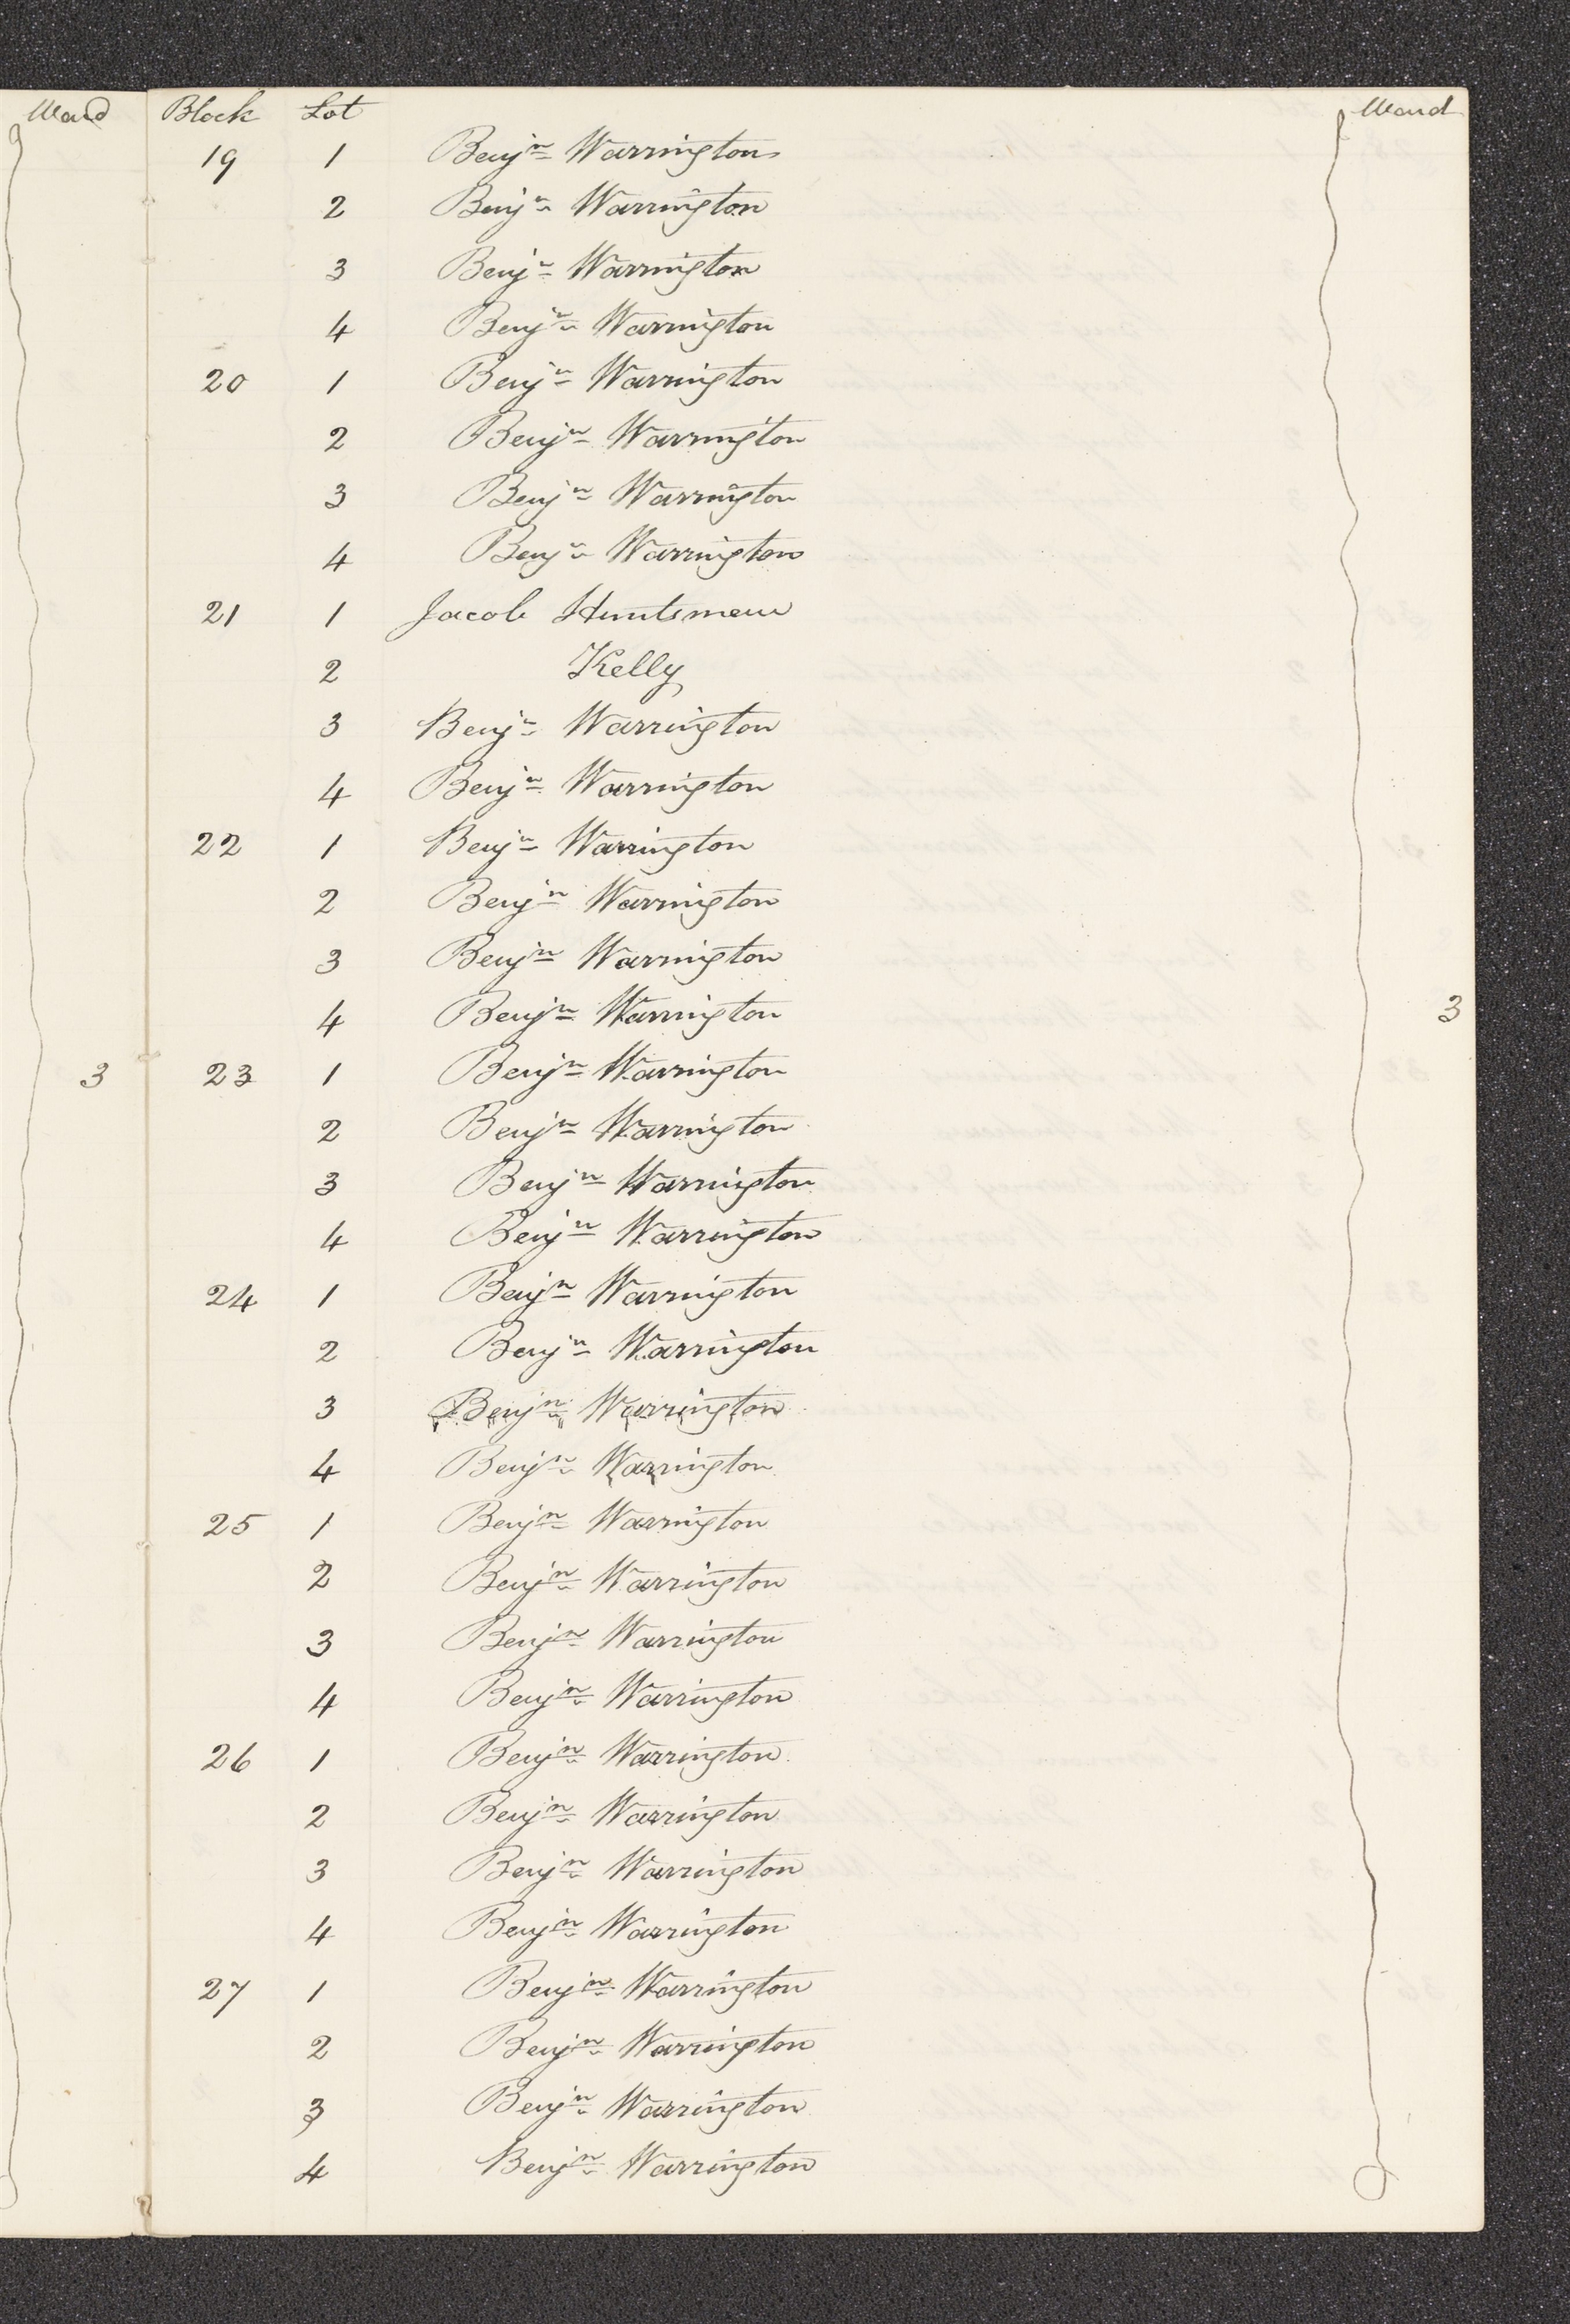 Ward Block Lot Ward
19 1 Benjn Warrington
2 Benjn Warrington
3 Benjn Warrington
4 Benjn Warrington
20 1 Benjn Warrington
2 Benjn Warrington
3 Benjn Warrington
4 Benjn Warrington
21 1 Jacob
2 Kelly
3 Benjn Warrington
4 Benjn Warrington
22 1 Benjn Warrington
2 Benjn Warrington
3 Benjn Warrington
4 Benjn Warrington 3
3 23 1 Benjn Warrington
2 Benjn Warrington
3 Benjn Warrington
4 Benjn Warrington
24 1 Benjn Warrington
2 Benjn Warrington
3 Benjn Warrington
4 Benjn Warrington
25 1 Benjn Warrington
2 Benjn Warrington
3 Benjn Warrington
4 Benjn Warrington
26 1 Benjn Warrington
2 Benjn Warrington
3 Benjn Warrington
4 Benjn Warrington
27 1 Benjn Warrington
2 Benjn Warrington
3 Benjn Warrington
4 Benjn Warrington